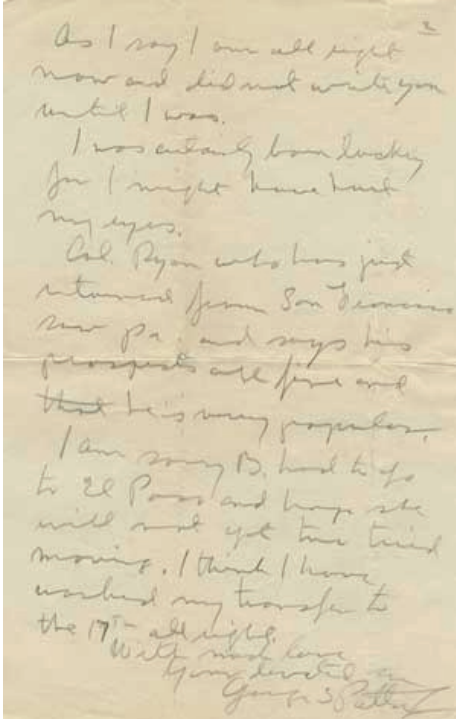 2
As I say I am all right
now and did not write you
until I was.
I was certainly born lucky
for I might have hurt
my eyes.
Col. Ryan who has just
returned from San Francisco
saw pa and says his
prospects are fine and
that he is very popular.
I am sorry B. had to go
to El Paso and hope she
will not get too tired
moving. I think I have
worked my transfer to
the 17th all right.
With much love
Your devoted son
George S Patton